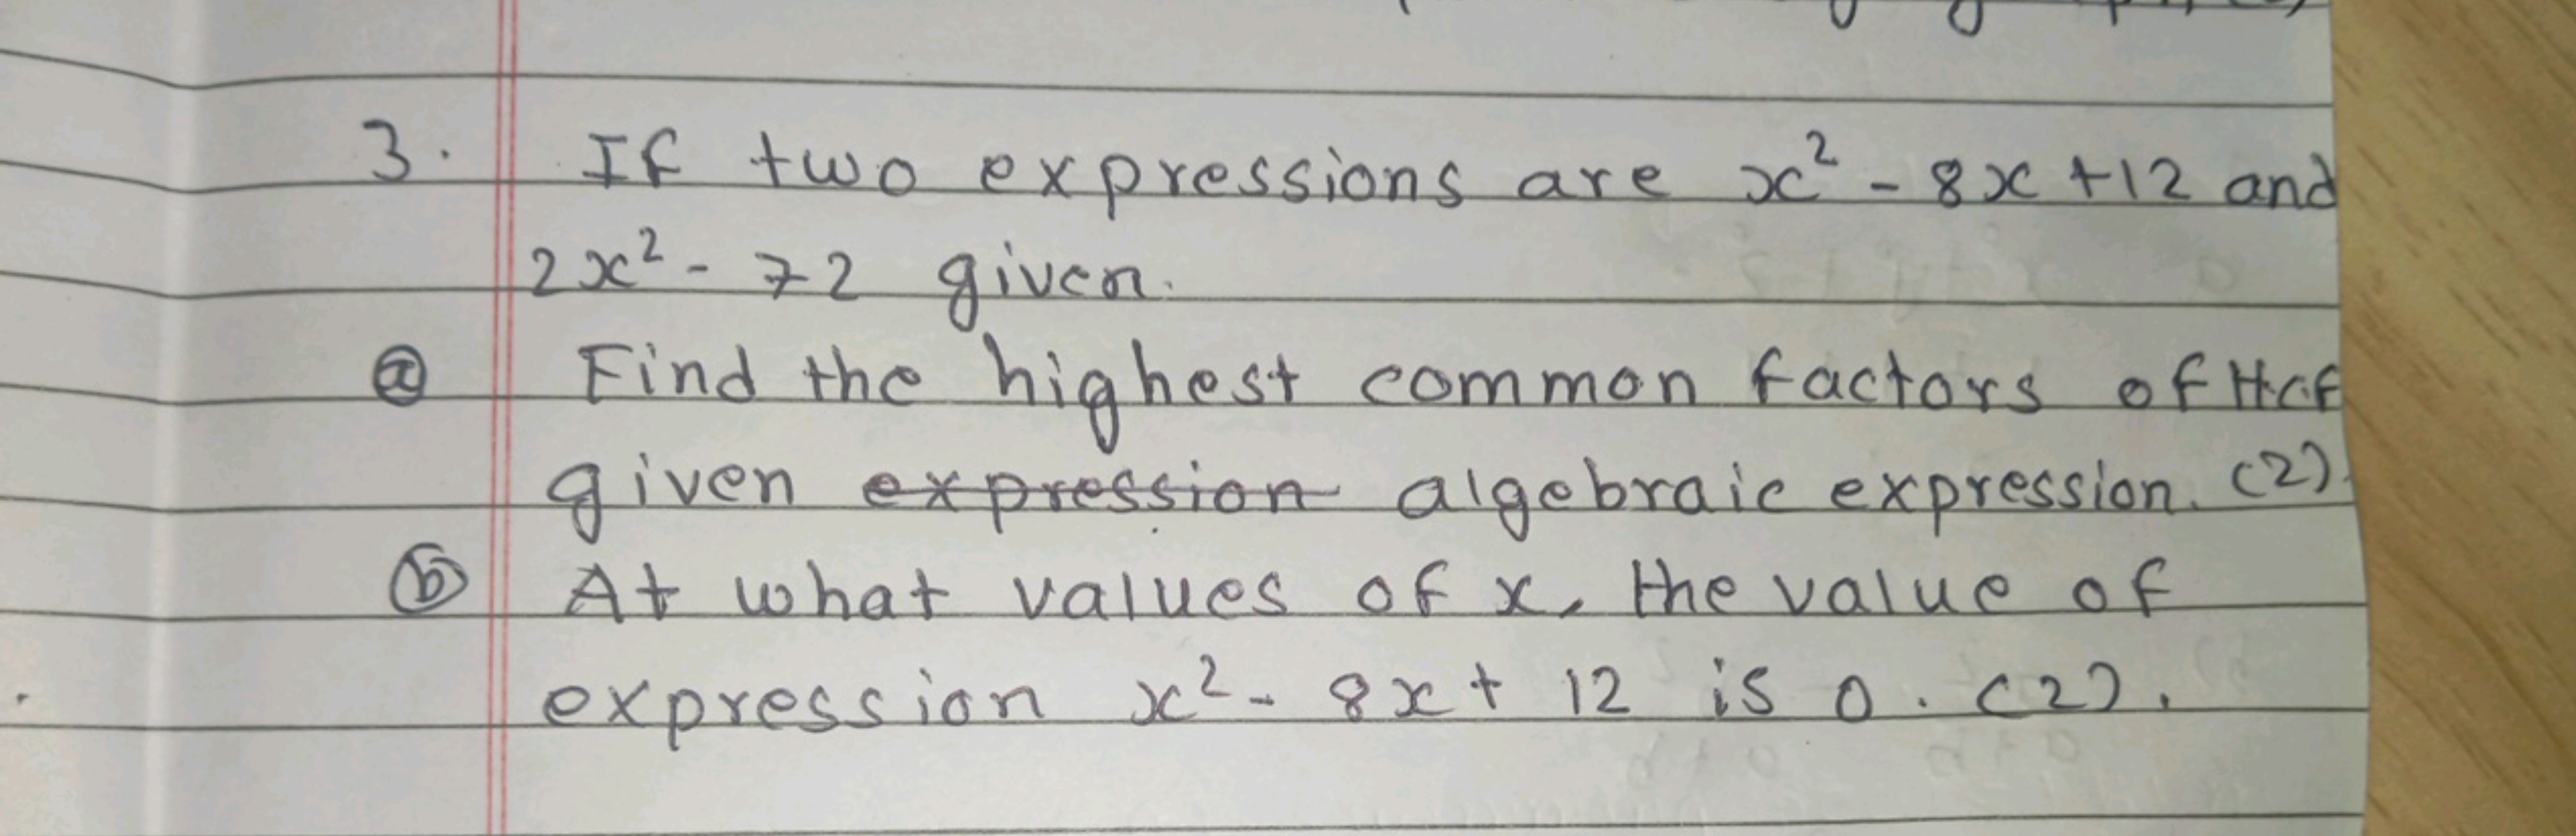 3. If two expressions are x² - 8x + 12 and
2x² - 72 given.
ⓐ Find the highest common factors of H.C.F
given ~~expression~~ algebraic expression. (2).
ⓑ At what values of x, the value of
expression x² - 8x + 12 is 0. (2).